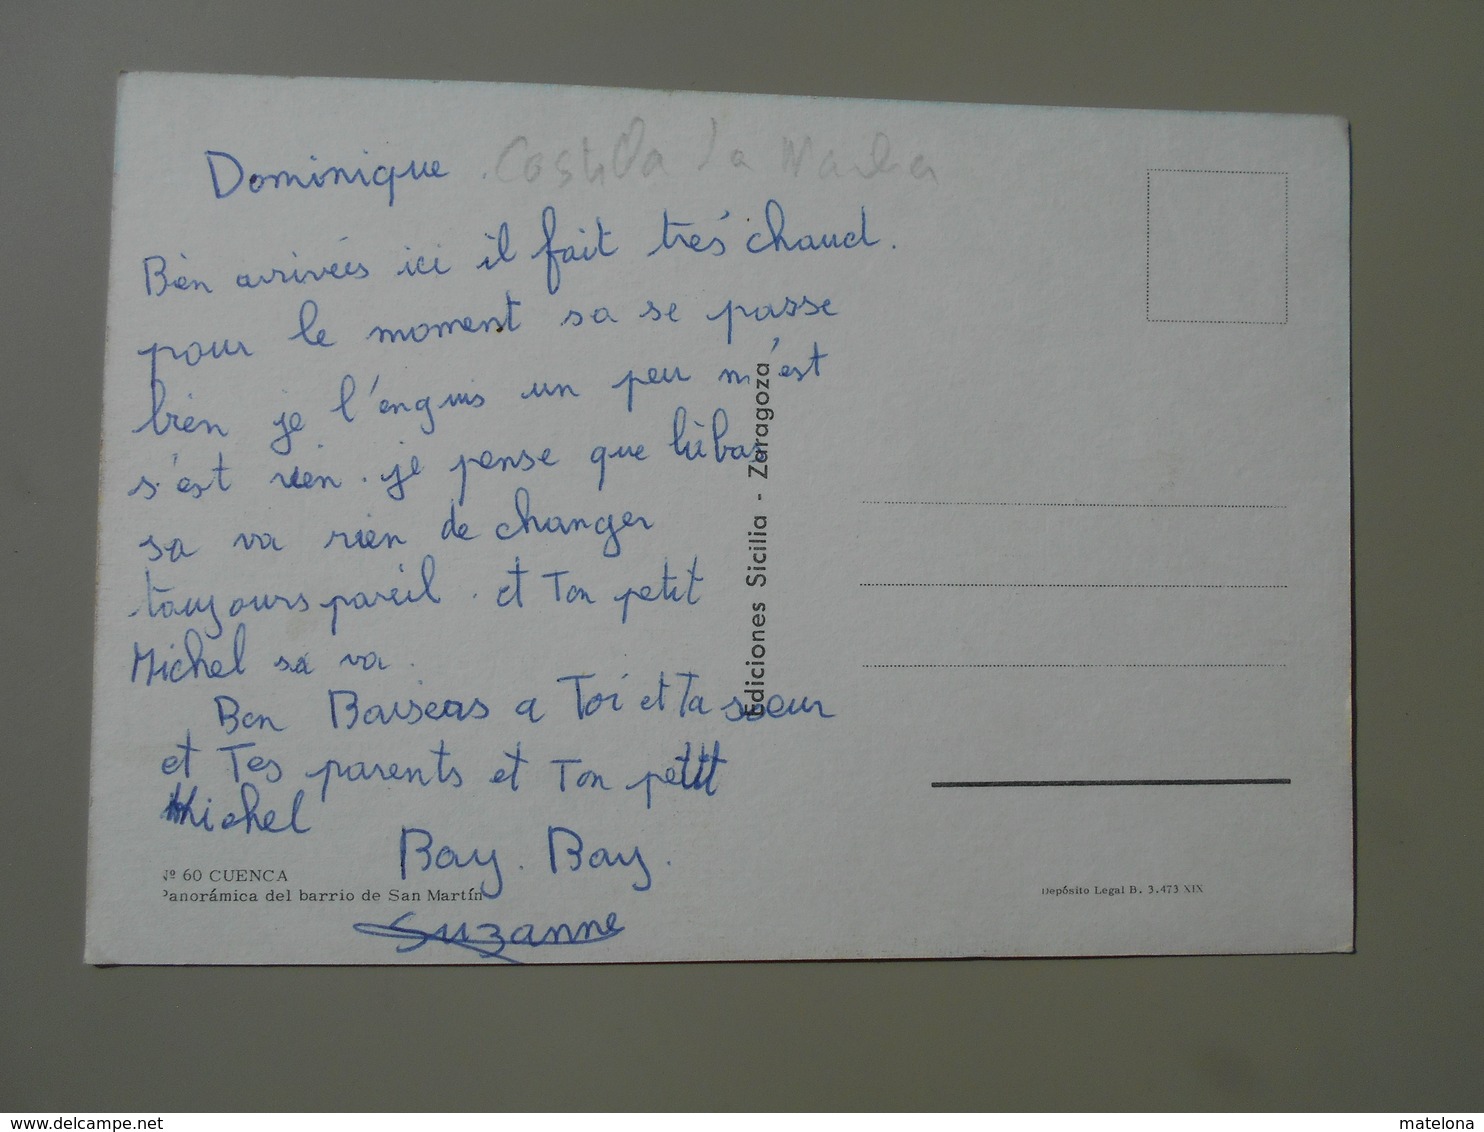 Dominique
Castilla La Mancha
Bièn arrivées ici il fait très chaud.
pour le moment sa se passe
bien je l'enguis un peu m'est
s'est rien. je pense que làbas
sa va rien de changer
toujours pareil. et Ton petit
Michel sa va.
Bon Baisers a Toi et Ta soeur
et Tes parents et Ton petit
Michel
Bay. Bay.
Suzanne
Nº 60 CUENCA
Panorámica del barrio de San Martín
Ediciones Sicilia - Zaragoza
Depósito Legal B. 3.473 XIX
www.delcampe.net
matelona